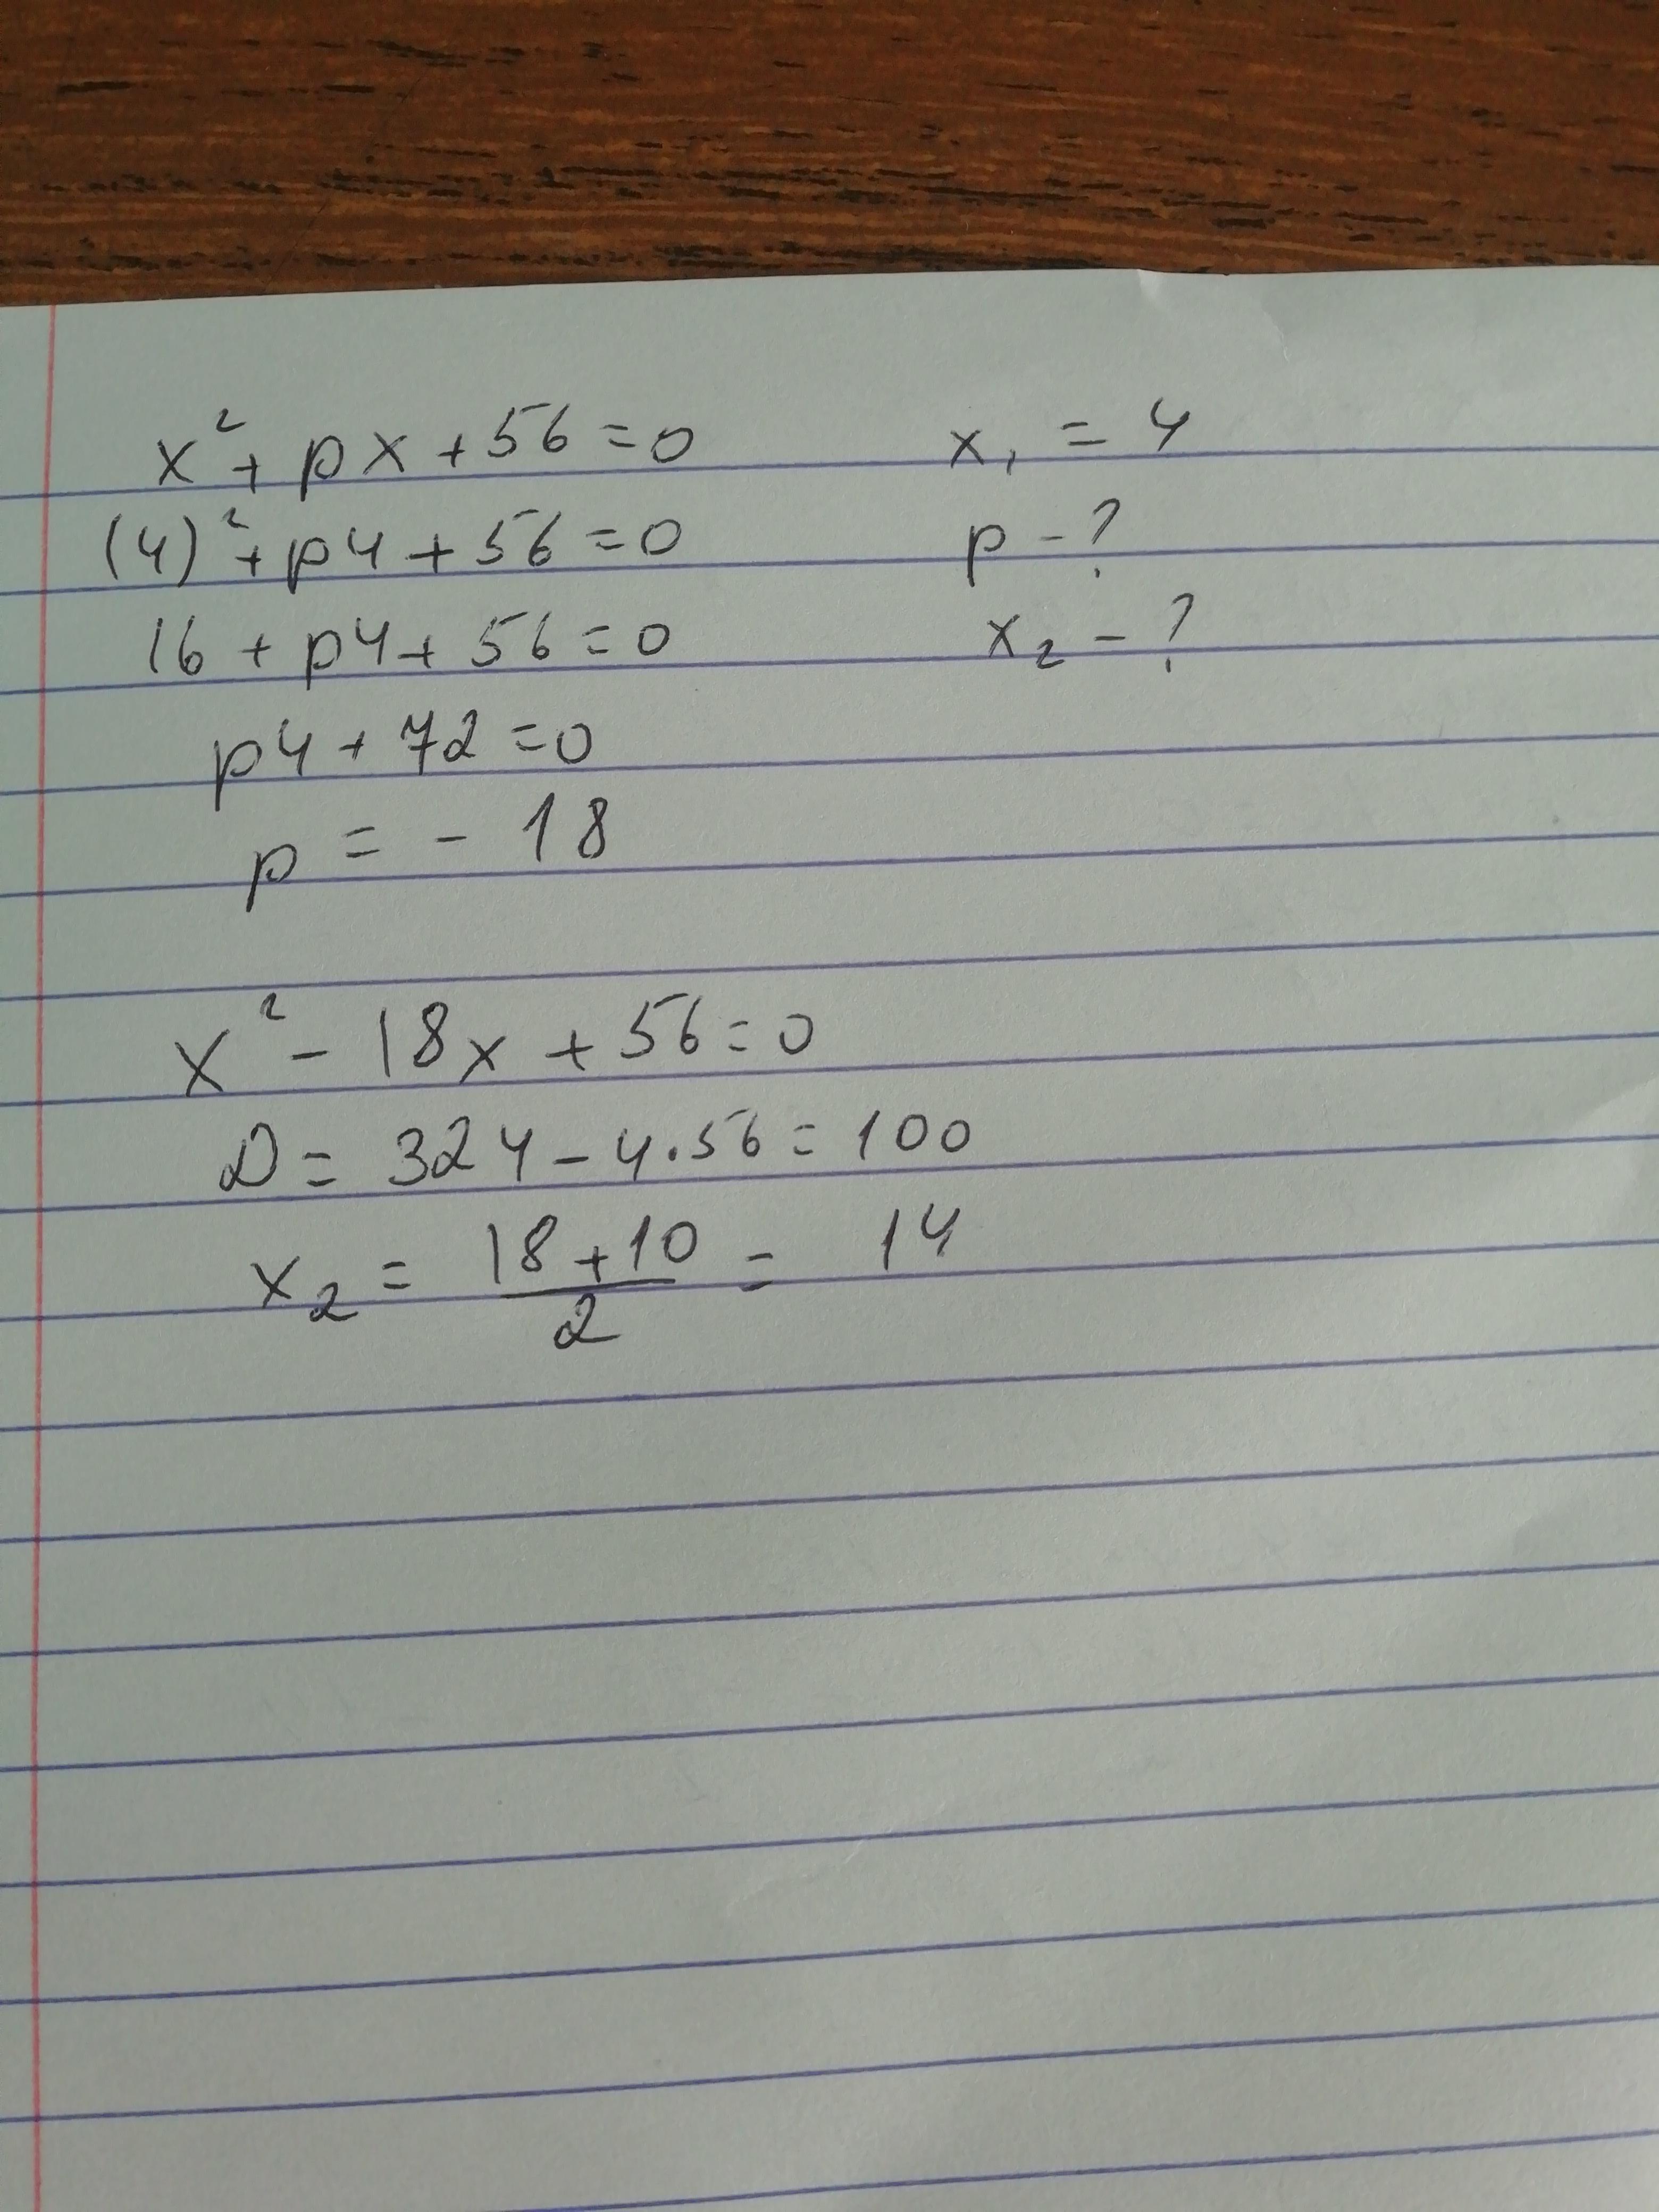 x² + px + 56 = 0
x₁ = 4
(4)² + p4 + 56 = 0
p - ?
16 + p4 + 56 = 0
x₂ - ?
p4 + 72 = 0
p = - 18
x² - 18x + 56 = 0
D = 324 - 4·56 = 100
x₂ = (18 + 10)/2 = 14